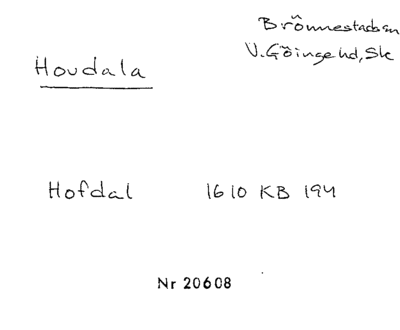 Brönnestads sn
V. Göinge hd, Sk
Hovdala
Hofdal 1610 KB 194
Nr 20608